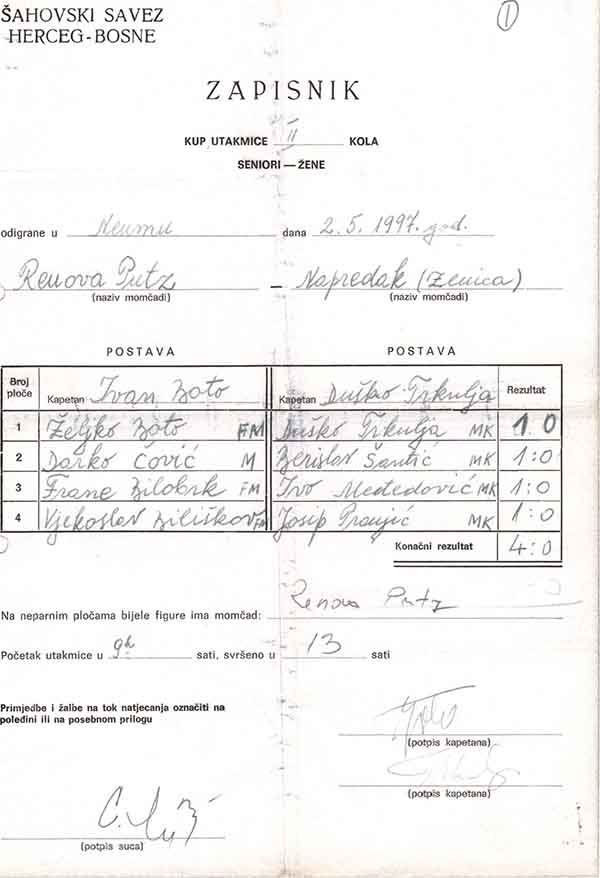 ŠAHOVSKI SAVEZ
HERCEG-BOSNE
1
ZAPISNIK
KUP UTAKMICE II KOLA
SENIORI — ŽENE
odigrane u Neumu dana 2.5.1997. god.
Renova Putz — Napredak (Zenica)
(naziv momčadi) (naziv momčadi)
POSTAVA POSTAVA
Broj ploče Kapetan Ivan Boto Kapetan Duško Trkulja Rezultat
1 Željko Boto FM Duško Trkulja MK 1 0
2 Darko Čović M Berislav Šantić MK 1:0
3 Frane Bilobrk FM Ivo Međedović MK 1:0
4 Vjekoslav Biliškov FM Josip Pranjić MK 1:0
Konačni rezultat 4:0
Na neparnim pločama bijele figure ima momčad: Renova Putz
Početak utakmice u 9h sati, svršeno u 13 sati
Primjedbe i žalbe na tok natjecanja označiti na
poleđini ili na posebnom prilogu
(potpis kapetana)
(potpis kapetana)
(potpis suca)